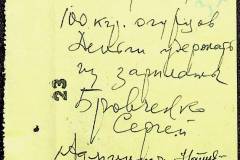 100 кг. огурцов
Деньги удержать
из зарплаты
23
Бровченко
Сергей